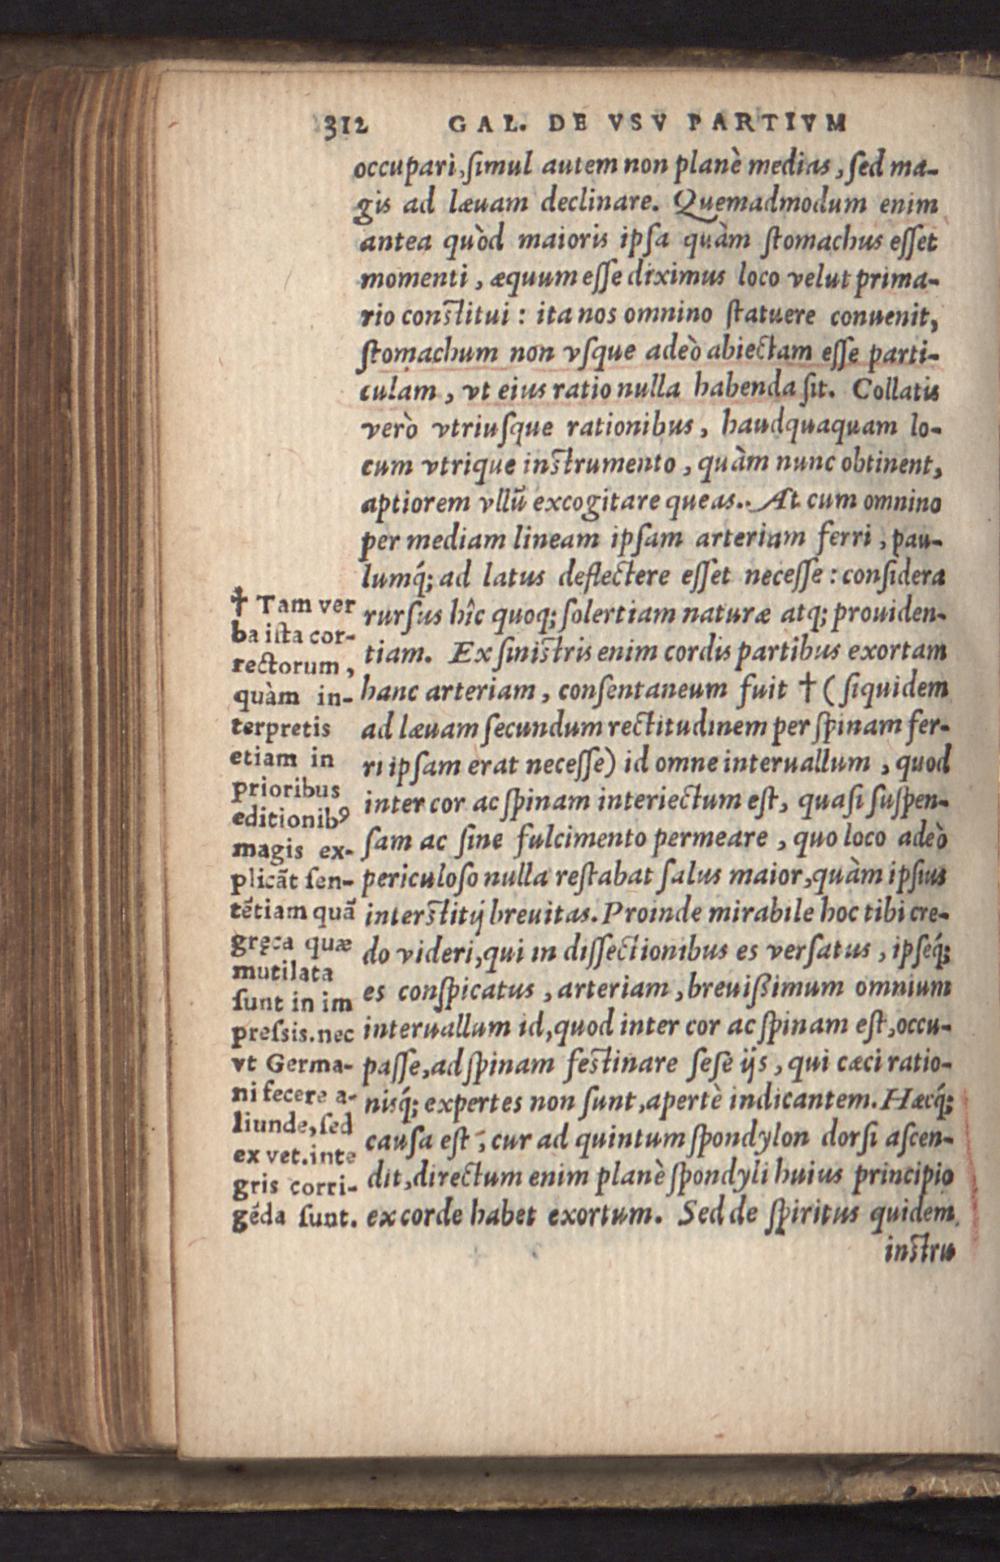 312 GAL. DE VSV PARTIVM
occupari, ſimul autem non planè medias, ſed ma-
gis ad læuam declinare. Quemadmodum enim
antea quòd maioris ipſa quàm ſtomachus eſſet
momenti, æquum eſſe diximus loco velut prima-
rio conſtitui: ita nos omnino ſtatuere conuenit,
ſtomachum non vſque adeò abiectam eſſe parti-
culam, vt eius ratio nulla habenda ſit. Collatis
verò vtriuſque rationibus, haudquaquam lo-
cum vtrique inſtrumento, quàm nunc obtinent,
aptiorem vllũ excogitare queas. At cum omnino
per mediam lineam ipſam arteriam ferri, pau-
lumq́; ad latus deflectere eſſet neceſſe: conſidera
rurſus hîc quoq; ſolertiam naturæ atq; prouiden-
tiam. Ex ſiniſtris enim cordis partibus exortam
hanc arteriam, conſentaneum fuit † (ſiquidem
ad læuam ſecundum rectitudinem per ſpinam fer-
ri ipſam erat neceſſe) id omne interuallum, quod
inter cor ac ſpinam interiectum eſt, quaſi ſuſpen-
ſam ac ſine fulcimento permeare, quo loco adeò
periculoſo nulla reſtabat ſalus maior, quàm ipſius
interſtitij breuitas. Proinde mirabile hoc tibi cre-
do videri, qui in diſſectionibus es verſatus, ipſeq́;
es conſpicatus, arteriam, breuiſsimum omnium
interuallum id, quod inter cor ac ſpinam eſt, occu-
paſſe, ad ſpinam feſtinare ſeſe ijs, qui cæci ratio-
nisq́; expertes non ſunt, apertè indicantem. Hæcq́;
cauſa eſt, cur ad quintum ſpondylon dorſi aſcen-
dit, directum enim planè ſpondyli huius principio
ex corde habet exortum. Sed de ſpiritus quidem
inſtru
† Tam ver
ba iſta cor-
rectorum,
quàm in-
terpretis
etiam in
prioribus
editionibꝰ
magis ex-
plicãt ſen-
tẽtiam quã
gręca quæ
mutilata
ſunt in im
preſsis. nec
vt Germa-
ni fecere a-
liunde, ſed
ex vet. inte
gris corri-
gẽda ſunt.